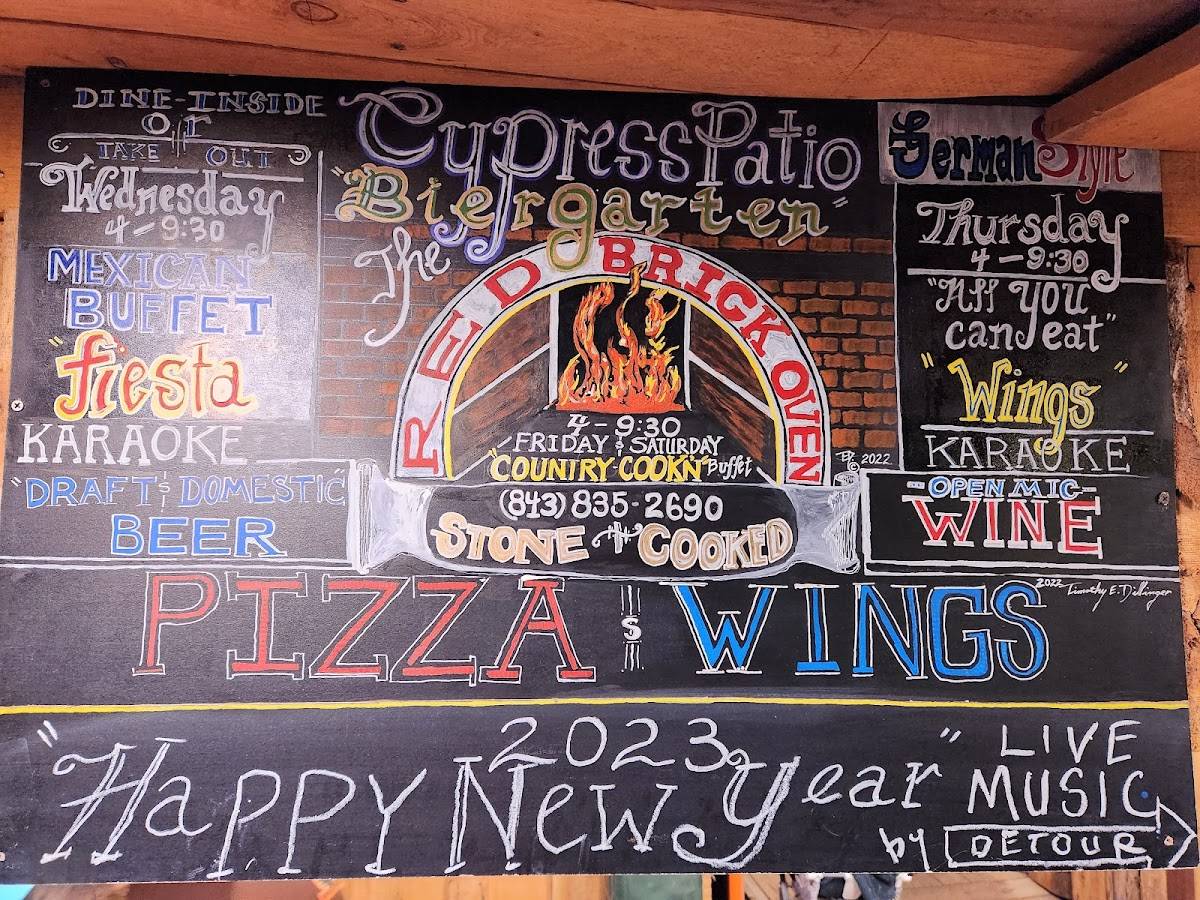 DINE-INSIDE
or
TAKE OUT
Wednesday
4-9:30
MEXICAN
BUFFET
"fiesta"
KARAOKE
"DRAFT & DOMESTIC"
BEER
Cypress Patio
"Biergarten"
The
RED BRICK OVEN
4-9:30
FRIDAY & SATURDAY
"COUNTRY-COOK'N" Buffet
(843) 835-2690
STONE + COOKED
© 2022
German Style
Thursday
4-9:30
"All you
can eat"
"Wings"
KARAOKE
-OPEN MIC-
WINE
PIZZA & WINGS
2022 Timothy E. Dillinger
2023
"HAPPY NEW Year"
LIVE
MUSIC
by DETOUR